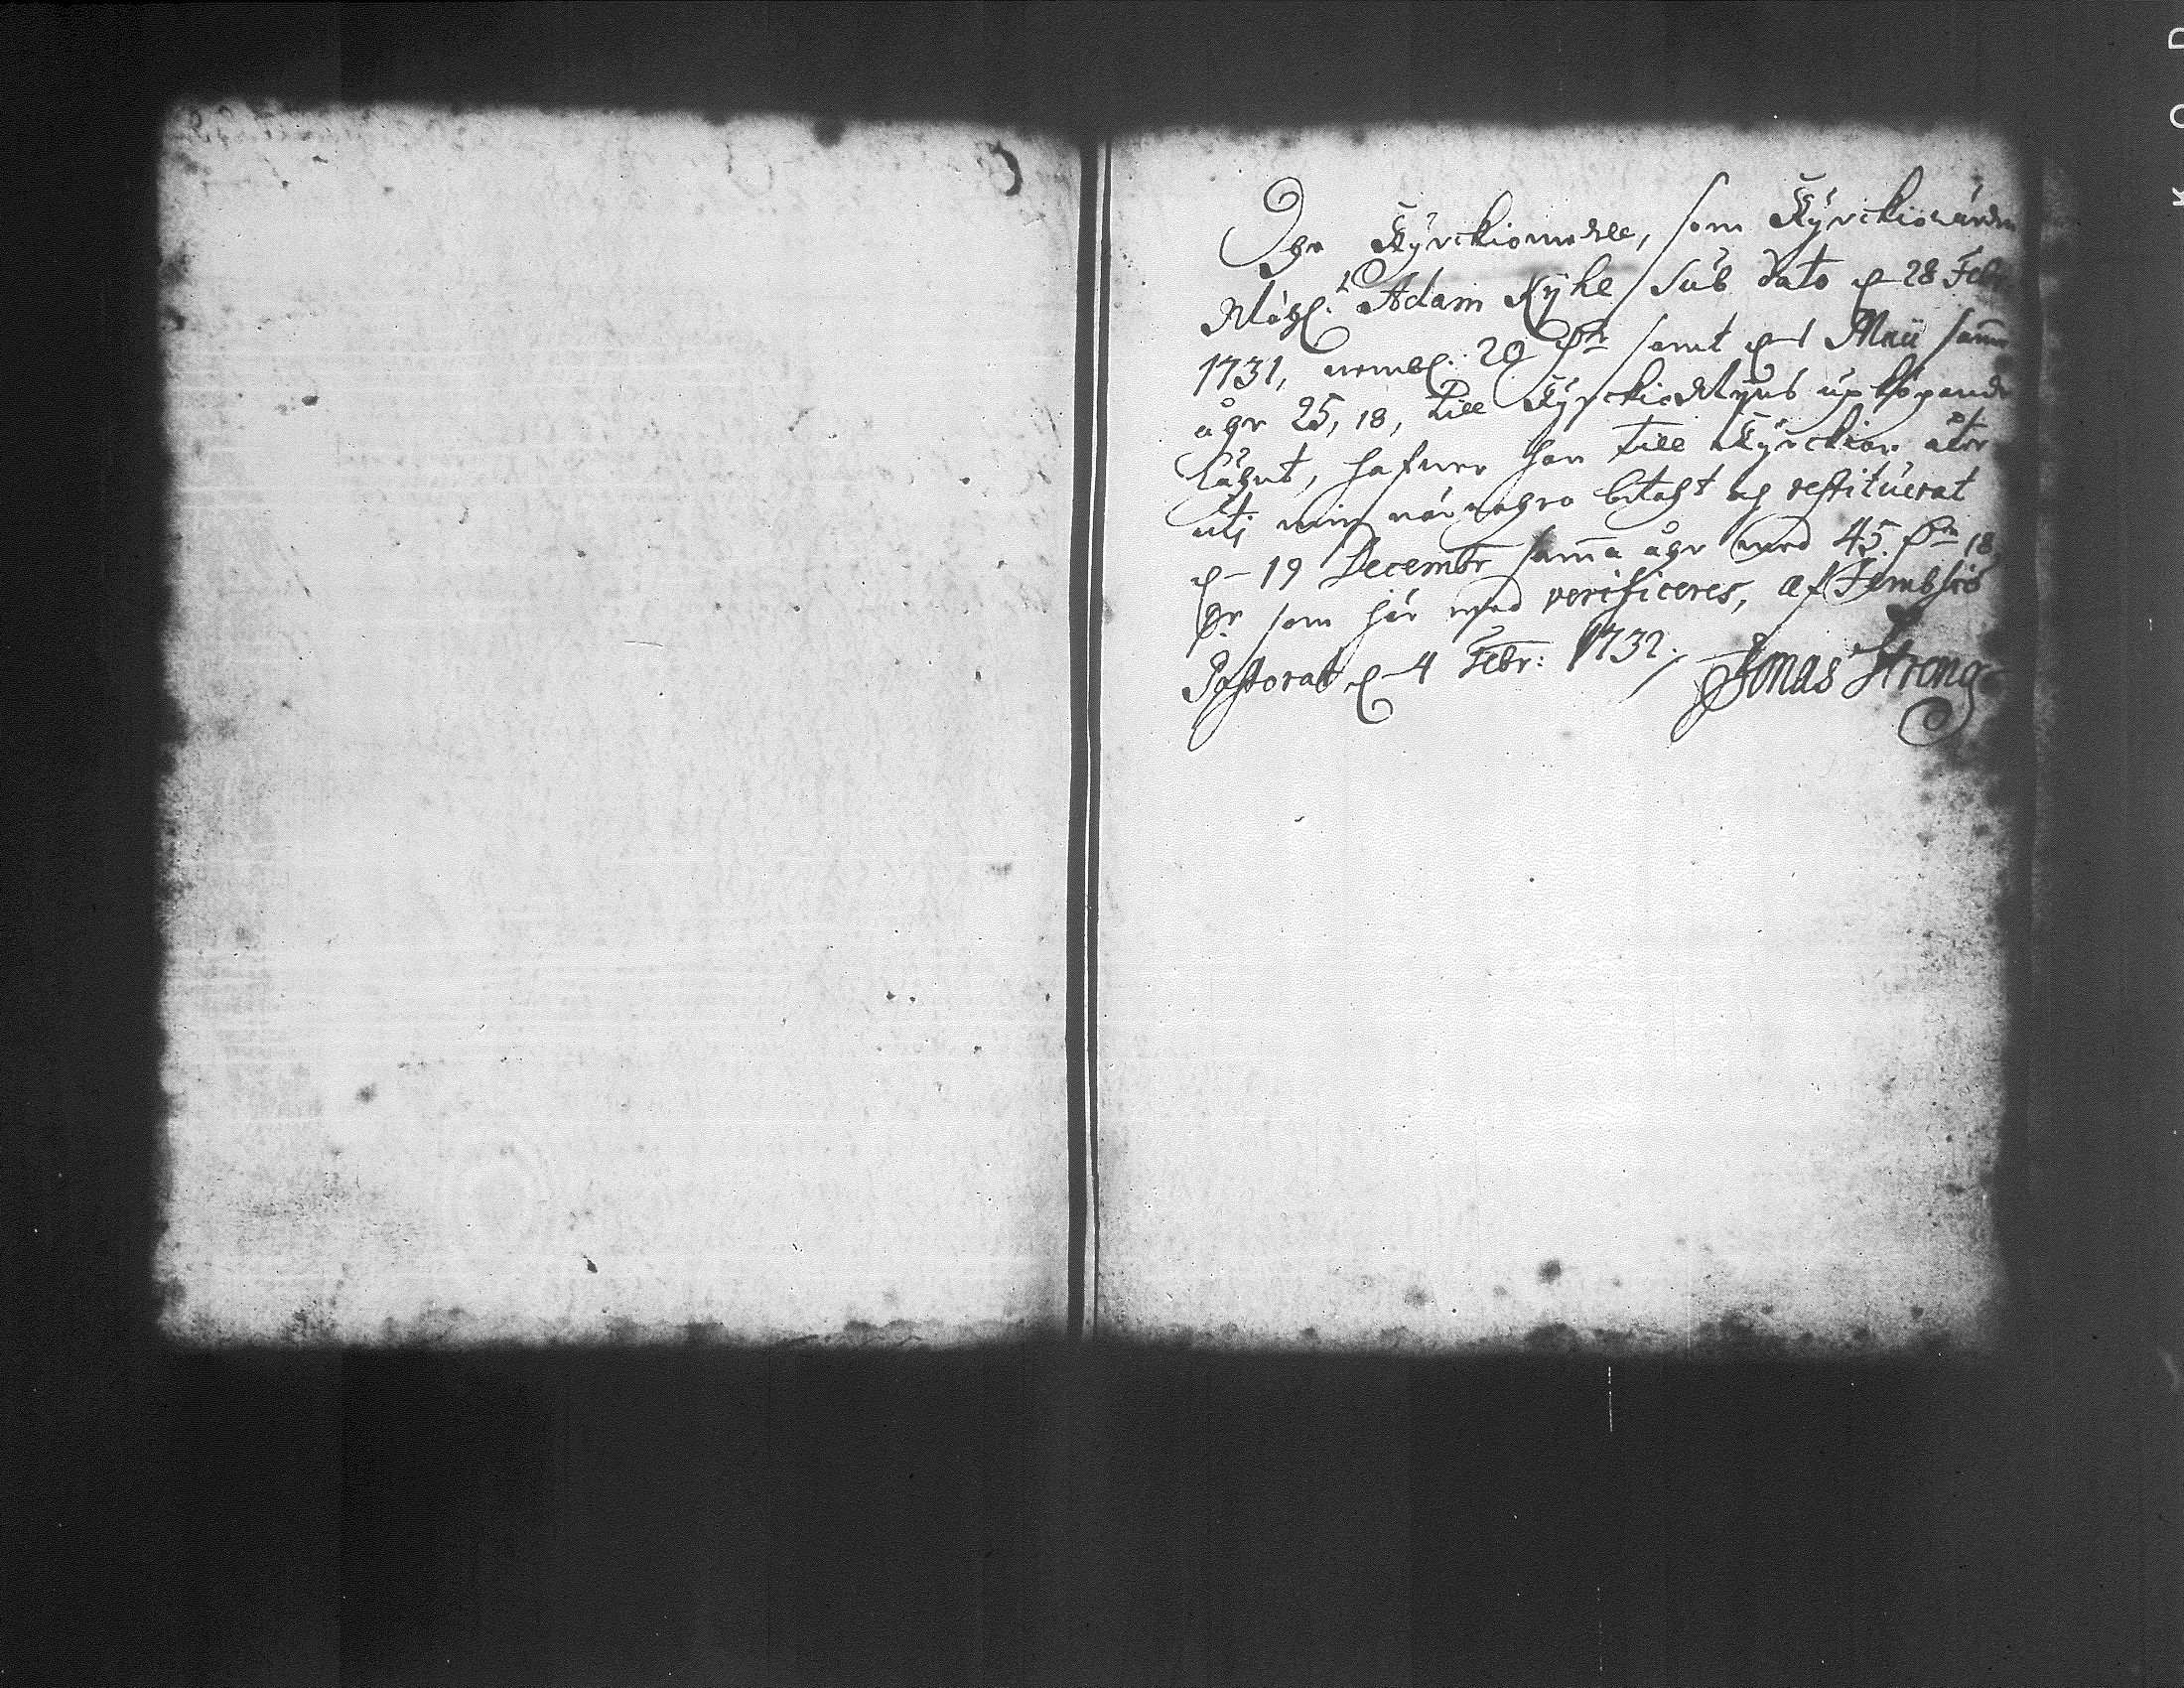 Kyrckiomedell, som Kyrckiowärden
Adam Kyhl sub dato d 28 Febr
1731, nembl. 20 samt d 1 Maii samma
åhr 25, 18, till Kyrckio uphöpande
låhnt, hafwer han till Kyrckian åter
uti min närwahro betahlt och restituerat
d 19 Decembr samma åhr med 45. 18
som här med verificeres, af Jembsiö
Pastorat d 4 Febr: 1732.
Jonas Streng
K O D